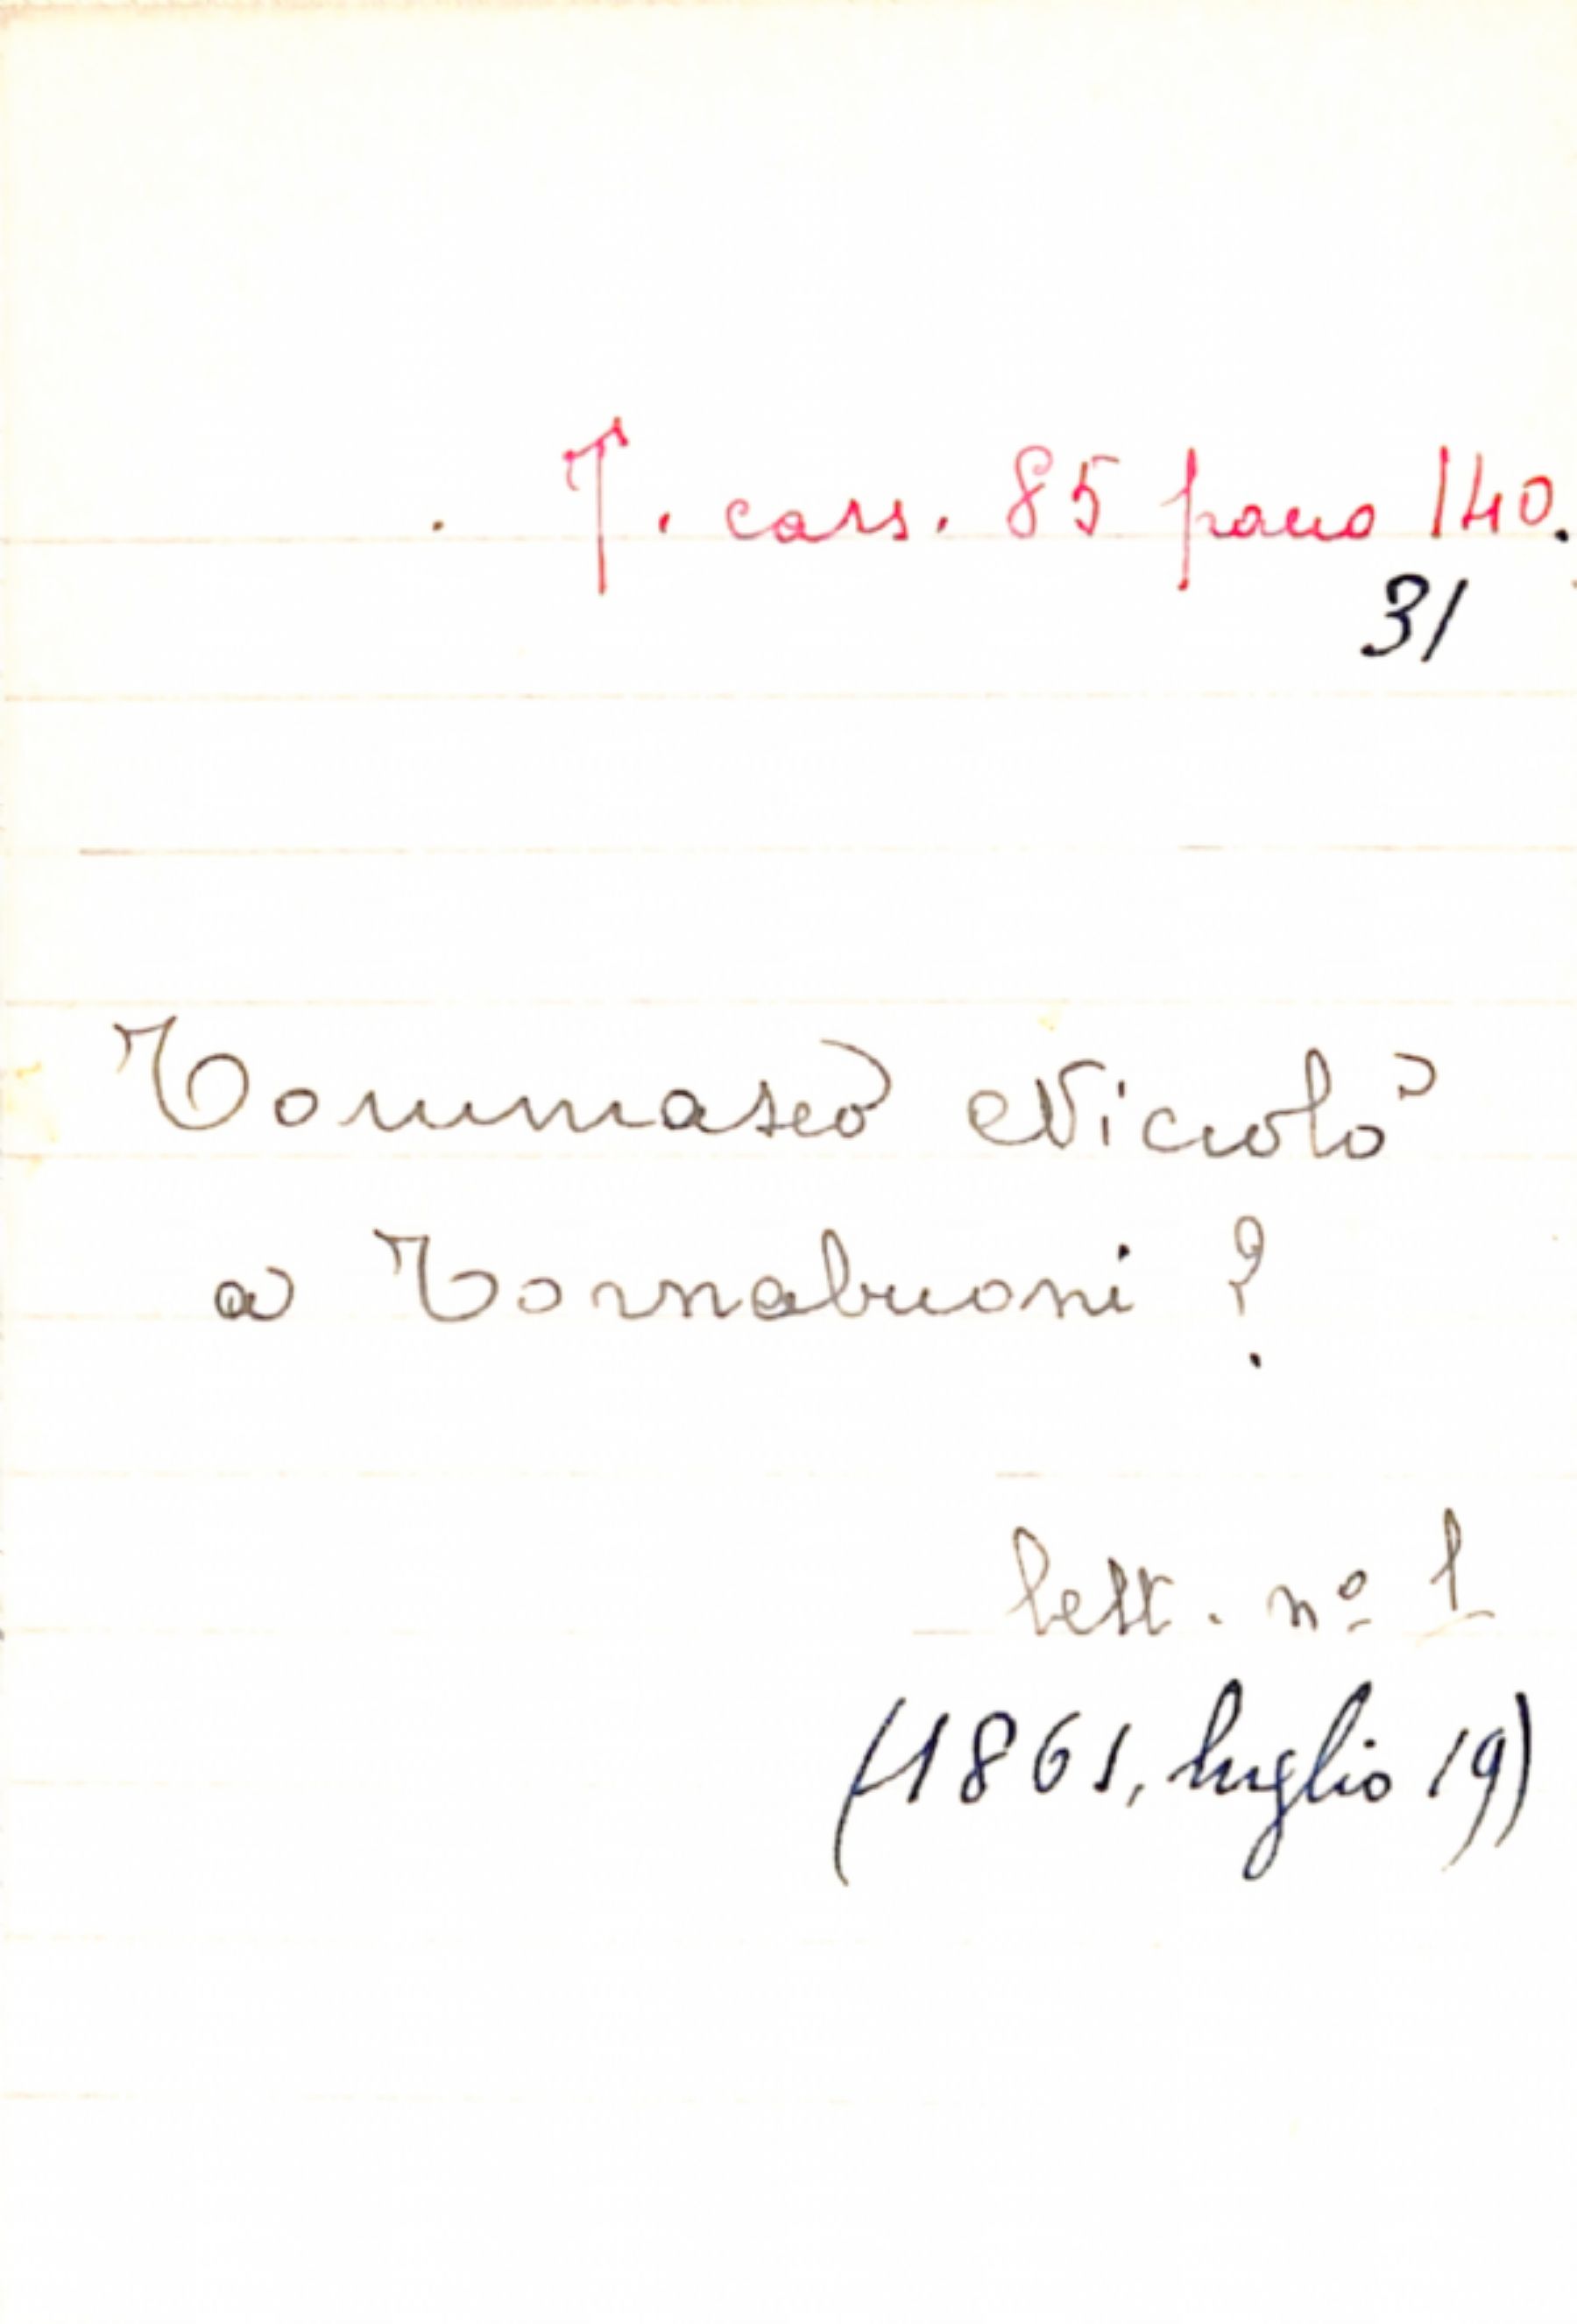 T. cass. 85 pacco 140.
31
Tommaseo Niccolò
a Tornabuoni ?
lett. nº 1
(1861, luglio 19)